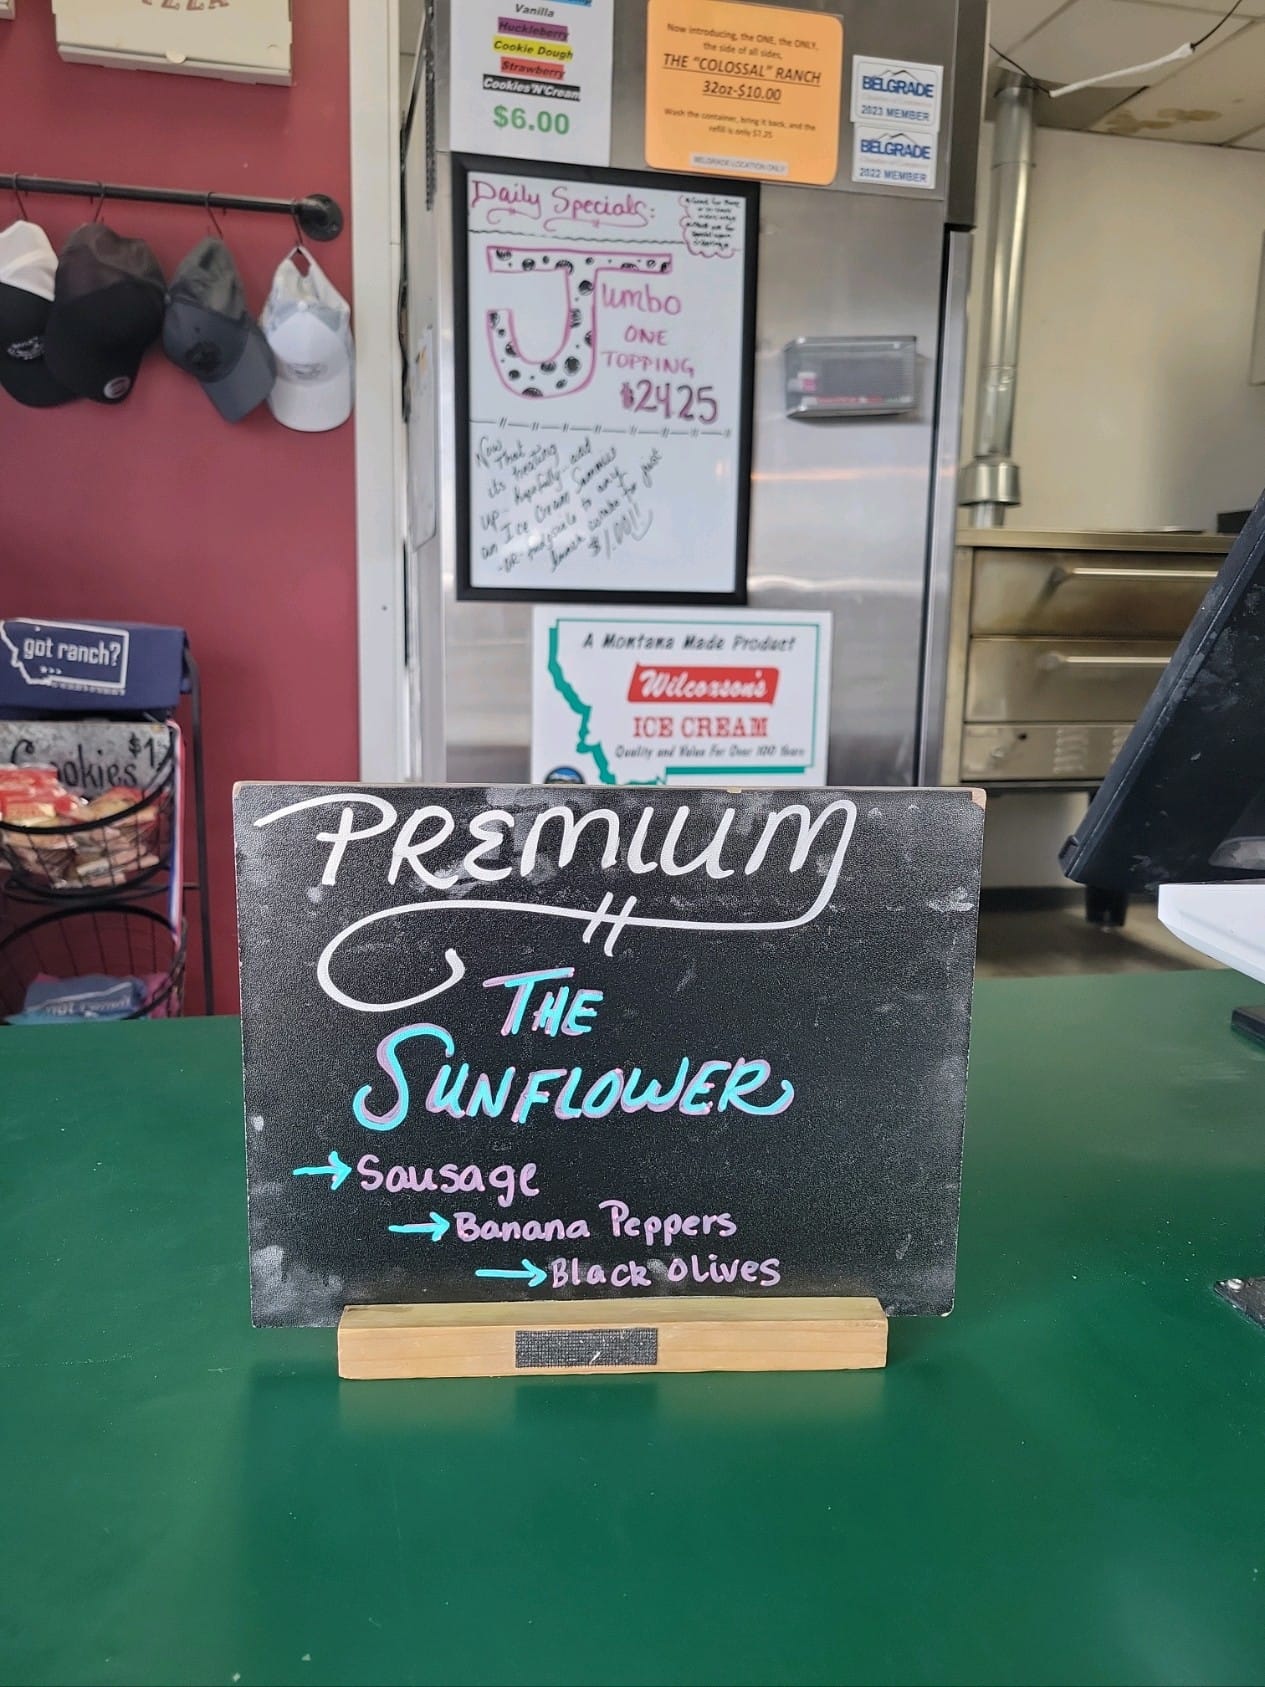 PIZZA
Vanilla
Huckleberry
Cookie Dough
Strawberry
Cookies'N'Cream
$6.00
Now introducing, the ONE, the ONLY,
the side of all sides,
THE "COLOSSAL" RANCH
32oz-$10.00
Wash the container, bring it back, and the
refill is only $7.25
BELGRADE LOCATION ONLY
BELGRADE
Chamber of Commerce
2023 MEMBER
BELGRADE
Chamber of Commerce
2022 MEMBER
Daily Specials:
Jumbo
ONE
TOPPING
$24.25
Now
That
its heating
up- Hopefully- add
an Ice Cream Sammie
-OR- to any
for just
$1.00!!
got ranch?
Cookies $1
A Montana Made Product
Wilcoxson's
ICE CREAM
Quality and Value For Over 100 Years
PREMIUM
THE
SUNFLOWER
→Sausage
→Banana Peppers
→Black Olives